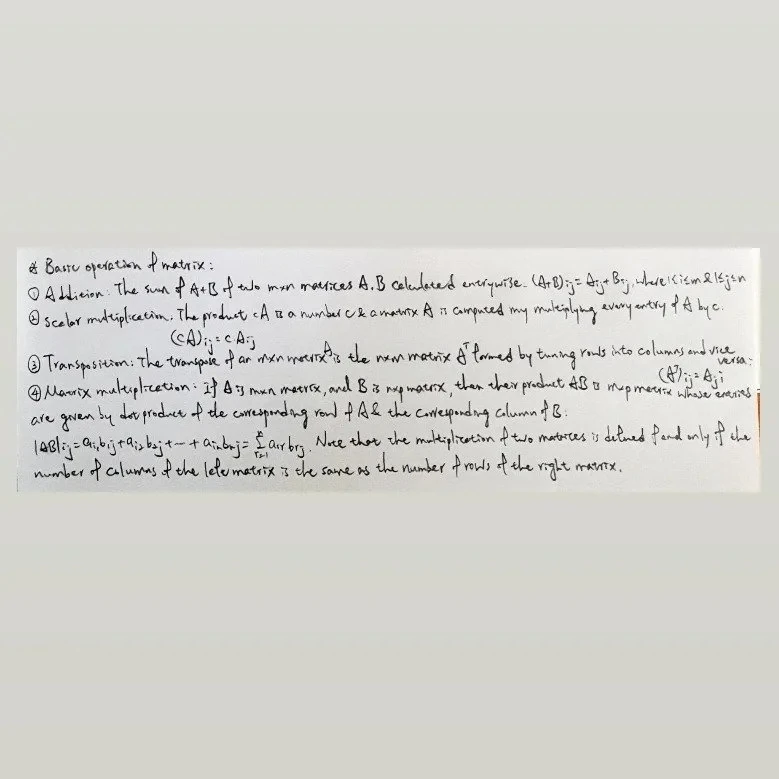 & Basic operation of matrix:
① Addition: The sum of A+B of two m×n matrices A.B calculated entrywise. (A+B)ij = Aij + Bij, where 1≤i≤m & 1≤j≤n
② scalar multiplication. The product cA is a number c & a matrix A is computed my multiplying every entry of A by c.
(cA)ij = c·Aij
③ Transposition: The transpose of an m×n matrix A is the n×m matrix Aᵀ formed by tuning rows into columns and vice versa:
(Aᵀ)ij = Aji
④ Matrix multiplication: If A is m×n matrix, and B is n×p matrix, then their product AB is m×p matrix whose entries
are given by dot product of the corresponding row of A & the corresponding column of B:
|AB|ij = ai1b1j + ai2b2j + ··· + ainbnj = Σⁿr=1 airbrj. Note that the multiplication of two matrices is defined if and only if the
number of columns of the left matrix is the same as the number of rows of the right matrix.